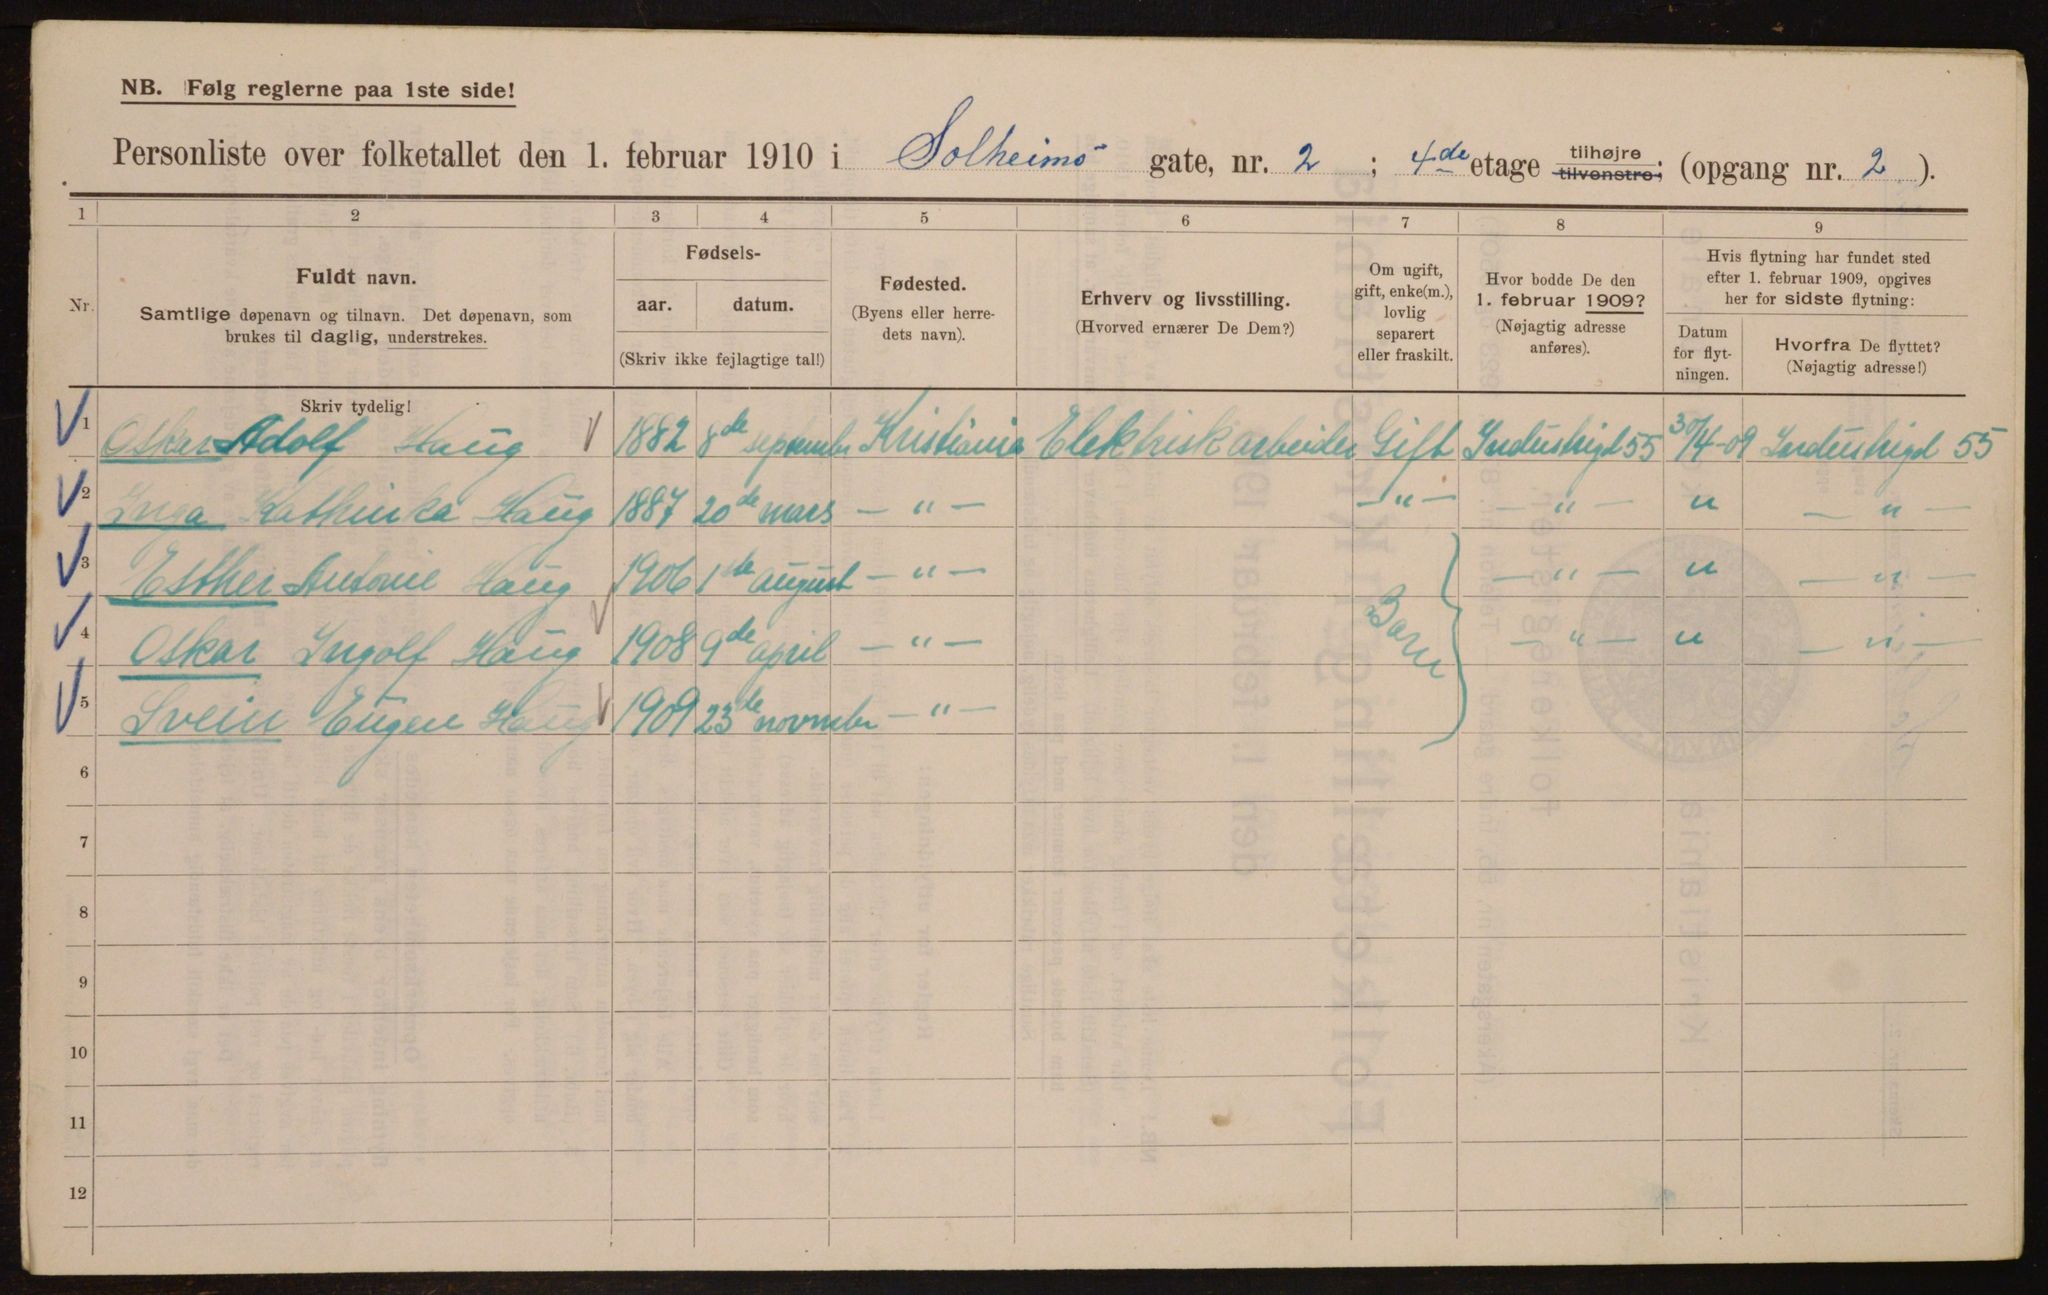 NB. Følg reglerne paa 1ste side!
Personliste over folketallet den 1. februar 1910 i Solheims gate, nr. 2 ; 4de etage tilhøjre tilvenstre; (opgang nr. 2 ).
1 2 3 4 5 6 7 8 9
Nr.
Fuldt navn.
Samtlige døpenavn og tilnavn. Det døpenavn, som
brukes til daglig, understrekes.
Fødsels-
aar. datum.
(Skriv ikke fejlagtige tal!)
Fødested.
(Byens eller herre-
dets navn).
Erhverv og livsstilling.
(Hvorved ernærer De Dem?)
Om ugift,
gift, enke(m.),
lovlig
separert
eller fraskilt.
Hvor bodde De den
1. februar 1909?
(Nøjagtig adresse
anføres).
Hvis flytning har fundet sted
efter 1. februar 1909, opgives
her for sidste flytning:
Datum
for flyt-
ningen.
Hvorfra De flyttet?
(Nøjagtig adresse!)
Skriv tydelig!
1 Oskar Adolf Haug 1882 8de september Kristiania Elektriskarbeider Gift Industrigd 55 30/4-09 Industrigd 55
2 Inga Kathinka Haug 1887 20de mars — " — — " — — " — " — " —
3 Esther Antonie Haug 1906 1ste august — " — — " — " — " —
4 Oskar Ingolf Haug 1908 9de april — " — Barn — " — " — " —
5 Svein Eugen Haug 1909 23de novmeber — " —
6
7
8
9
10
11
12